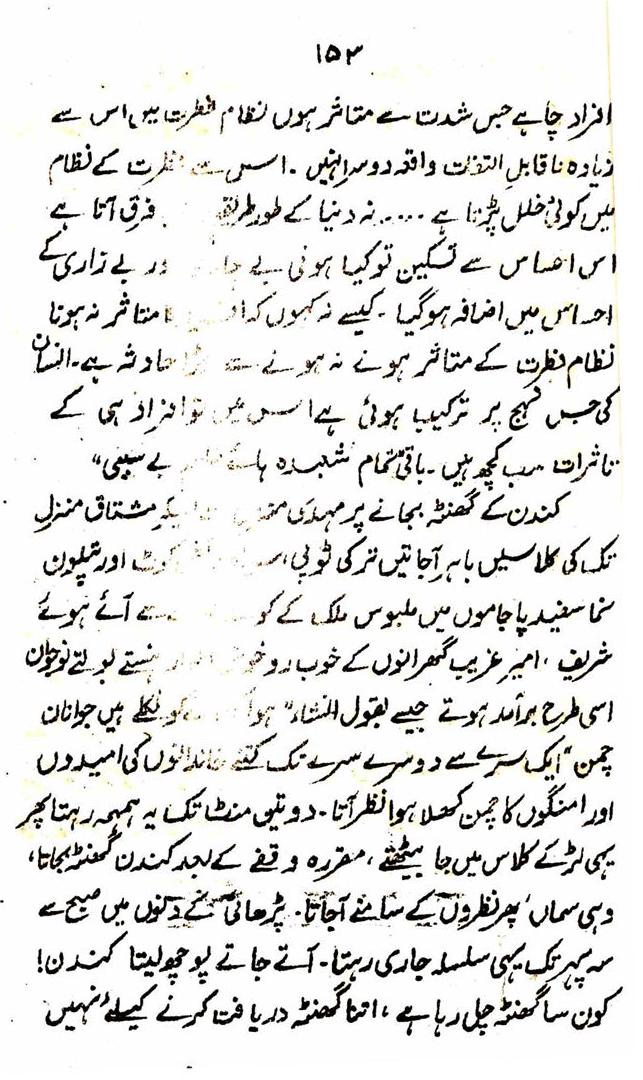 ۱۵۳
افراد چاہے جس شدت سے متاثر ہوں نظام فطرت میں اس سے
زیادہ ناقابلِ التفات واقعہ دوسرا نہیں ۔ اس سے فطرت کے نظام
میں کوئی خلل پڑتا ہے ..... نہ دنیا کے طور طریقہ فرق آتا ہے
اس احساس سے تسکین تو کیا ہوتی بے اور بے زاری کے
احساس میں اضافہ ہو گیا ۔ کیسے نہ کہوں کہ کا متاثر نہ ہونا
نظام فطرت کے متاثر ہونے نہ ہونے سے بڑا حادثہ ہے ۔ انسان
کی جس نہج پر ترکیب ہوئی ہے اس میں تو افراد ہی کے
تاثرات سب کچھ ہیں ۔ باقی تمام شعبدہ ہائے بے سببی"
کندن کے گھنٹہ بجانے پر مہدی منزل لیکر مشتاق منزل
تک کی کلاسیں باہر آجاتیں ترکی ٹوپی، کوٹ اور پتلون
نما سفید پاجاموں میں ملبوس ملک کے سے آئے ہوئے
شریف ، امیر غریب گھرانوں کے خوب رو خوش ہنستے بولتے نوجوان
اسی طرح برآمد ہوتے جیسے بقول انشاء" ہوا کو نکلے ہیں جوانان
چمن" ایک سرے سے دوسرے سرے تک کتنے خاندانوں کی امیدوں
اور امنگوں کا چمن کھلا ہوا نظر آتا ۔ دو تین منٹ تک یہ ہمہمہ رہتا پھر
یہی لڑکے کلاس میں جا بیٹھتے ، مقررہ وقفے کے بعد کندن گھنٹہ بجاتا،
وہی سماں پھر نظروں کے سامنے آجاتا ۔ پڑھائی کے دنوں میں صبح سے
سہ پہر تک یہی سلسلہ جاری رہتا ۔ آتے جاتے پوچھ لیتا کندن!
کون سا گھنٹہ چل رہا ہے ، اتنا گھنٹہ دریافت کرنے کیلئے نہیں